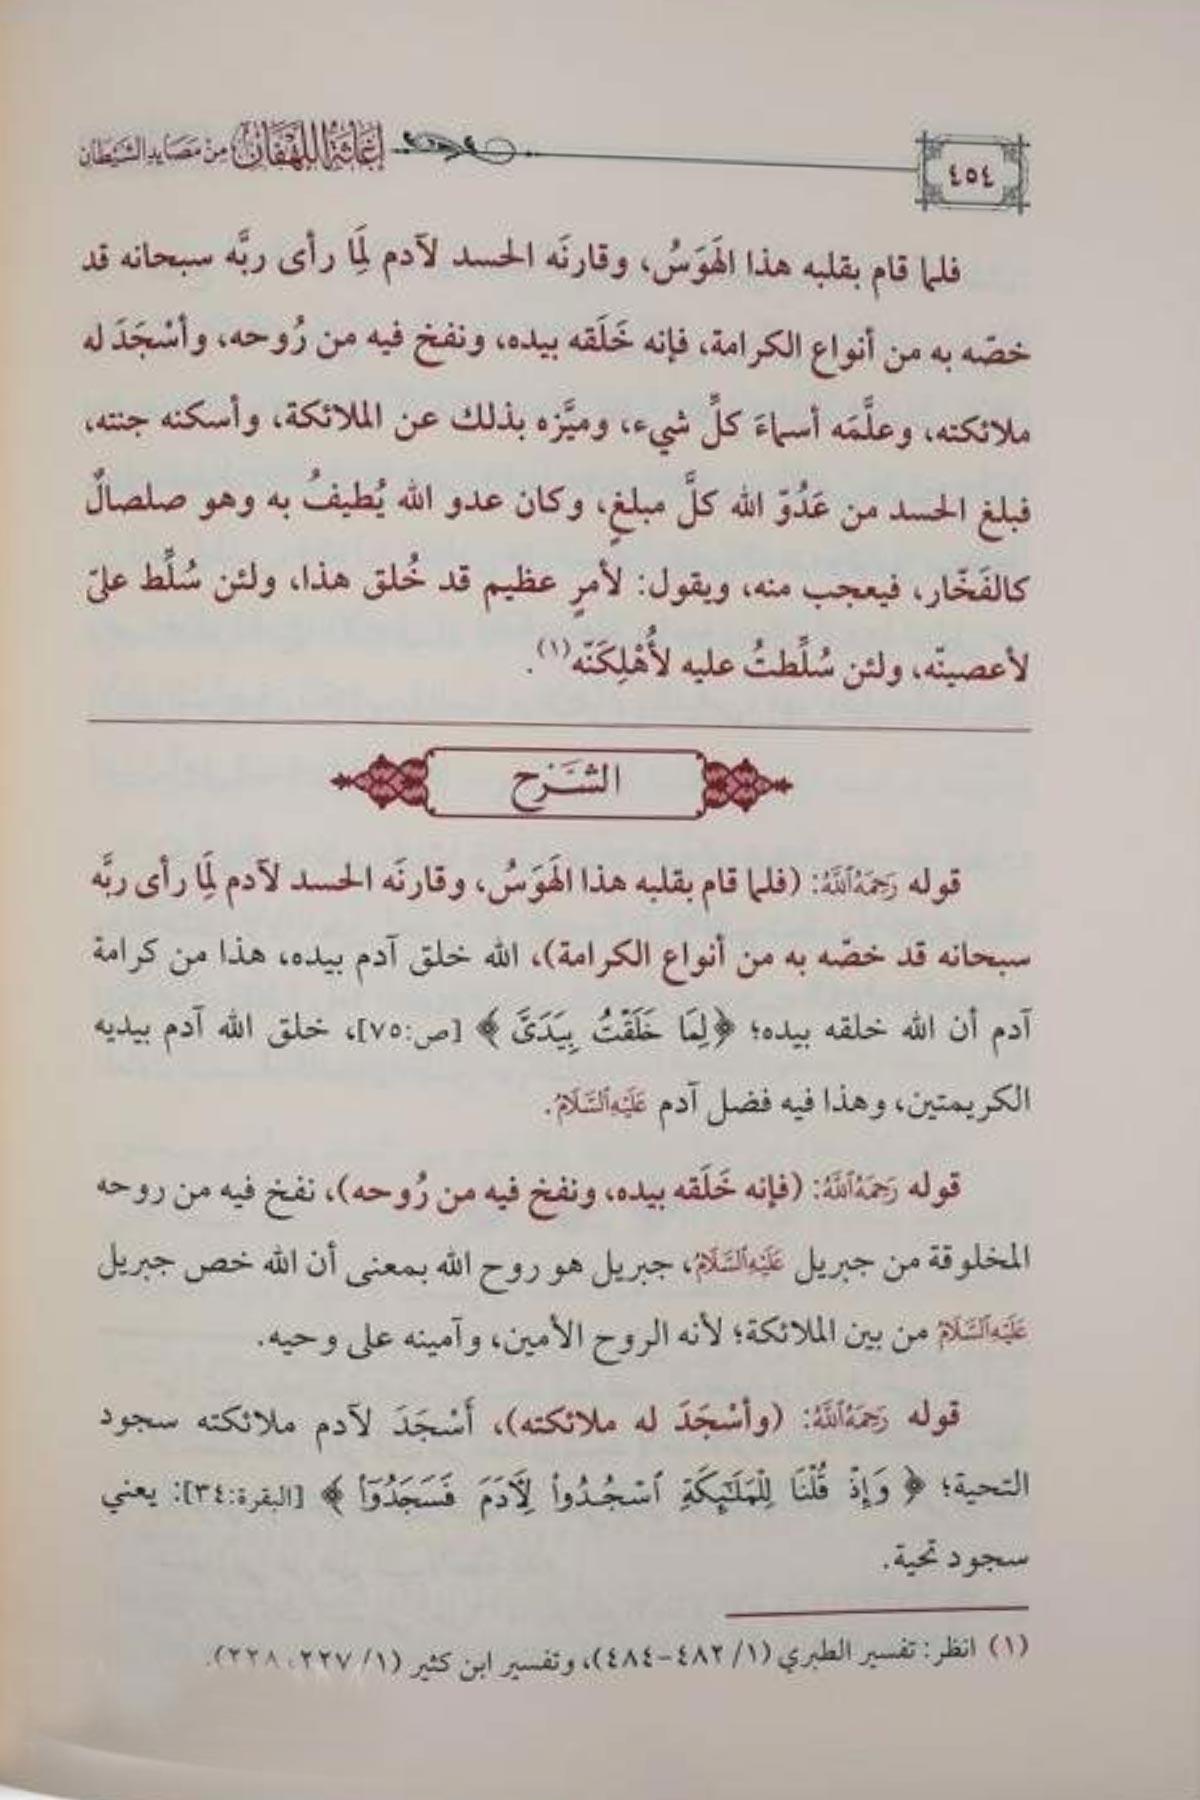 ٤٥٤
إغاثة اللهفان من مصايد الشيطان
فلما قام بقلبه هذا الهَوَسُ، وقارنَه الحسد لآدم لِمَا رأى ربَّه سبحانه قد
خصّه به من أنواع الكرامة، فإنه خَلَقه بيده، ونفخ فيه من رُوحه، وأسْجَدَ له
ملائكته، وعلَّمَه أسماءَ كلِّ شيء، وميَّزه بذلك عن الملائكة، وأسكنه جنته،
فبلغ الحسد من عَدُوّ الله كلَّ مبلغٍ، وكان عدو الله يُطيفُ به وهو صلصالٌ
كالفَخّار، فيعجب منه، ويقول: لأمرٍ عظيم قد خُلق هذا، ولئن سُلِّط عليّ
لأعصينّه، ولئن سُلِّطتُ عليه لأُهْلِكَنّه(١).
الشَّرْح
قوله رَحِمَهُ ٱللَّهُ: (فلما قام بقلبه هذا الهَوَسُ، وقارنَه الحسد لآدم لِمَا رأى ربَّه
سبحانه قد خصّه به من أنواع الكرامة)، الله خلق آدم بيده، هذا من كرامة
آدم أن الله خلقه بيده؛ ﴿لِمَا خَلَقْتُ بِيَدَىَّ﴾ [ص:٧٥]، خلق الله آدم بيديه
الكريمتين، وهذا فيه فضل آدم عَلَيْهِ ٱلسَّلَامُ.
قوله رَحِمَهُ ٱللَّهُ: (فإنه خَلَقه بيده، ونفخ فيه من رُوحه)، نفخ فيه من روحه
المخلوقة من جبريل عَلَيْهِ ٱلسَّلَامُ، جبريل هو روح الله بمعنى أن الله خص جبريل
عَلَيْهِ ٱلسَّلَامُ من بين الملائكة؛ لأنه الروح الأمين، وآمينه على وحيه.
قوله رَحِمَهُ ٱللَّهُ: (وأسْجَدَ له ملائكته)، أَسْجَدَ لآدم ملائكته سجود
التحية؛ ﴿وَإِذْ قُلْنَا لِلْمَلَـٰٓئِكَةِ ٱسْجُدُوا۟ لِـَٔادَمَ فَسَجَدُوٓا۟﴾ [البقرة:٣٤]: يعني
سجود تحية.
(١) انظر: تفسير الطبري (١/ ٤٨٢-٤٨٤)، وتفسير ابن كثير (١/ ٢٢٧، ٢٢٨).